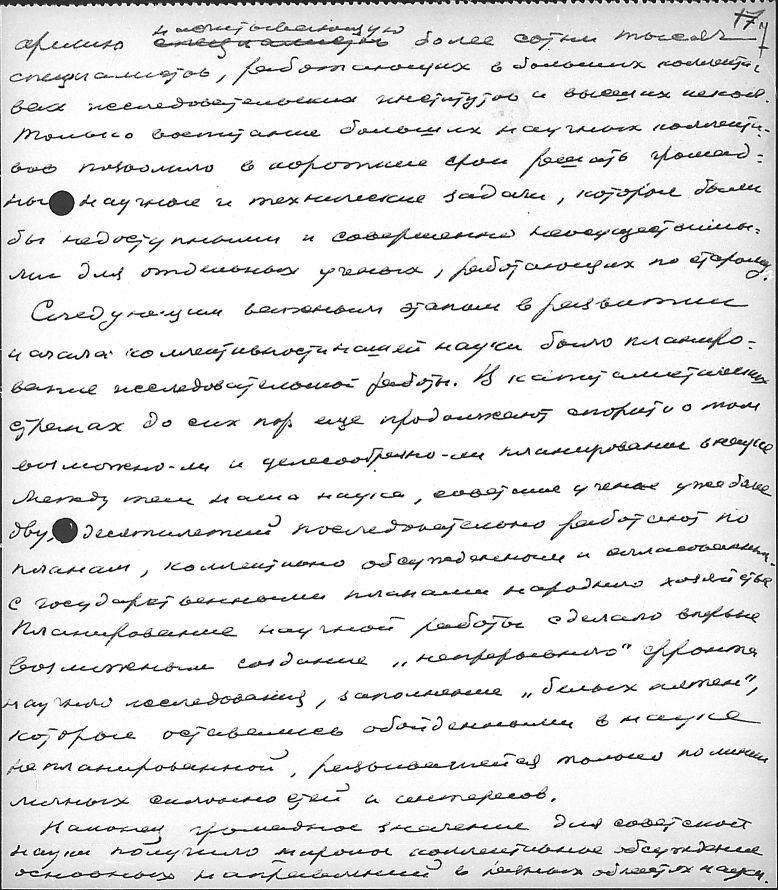 17
насчитывающую
армию специалистов более сотни тысяч
специалистов, работающих в больших коллекти-
вах исследовательских институтов и высших школ.
Только воспитание больших научных коллекти-
вов позволило в короткие сроки решать громад-
ные научные и технические задачи, которые были
бы недоступными и совершенно неосуществимы-
ми для отдельных ученых, работающих по старому.
Следующим важным этапом в развитии
начала коллективности нашей науки было планиро-
вание исследовательской работы. В капиталистических
странах до сих пор еще продолжают спорить о том
возможно-ли и целесообразно-ли планирование в науке
Между тем наша наука, советские ученые уже более
двух десятилетий последовательно работают по
планам, коллективно обсужденным и согласованным
с государственными планами народного хозяйства
Планирование научной работы сделало впервые
возможным создание „непрерывного" фронта
научного исследования, заполнение „белых пятен",
которые оставались обойденными в науке
не планированной, развивавшейся только по линии
личных склонностей и интересов.
Наконец громадное значение для советской
науки получило широкое коллективное обсуждение
основных направлений в разных областях науки.